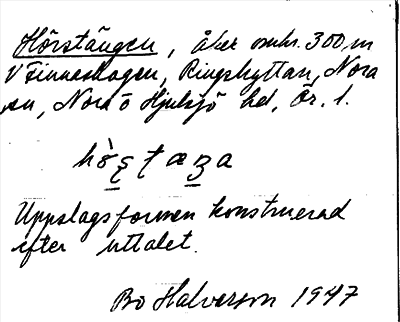 Hörstängen, åker omkr. 300 m
V Finneskogen, Ringshyttan, Nora
sn, Nora o Hjulsjö hd, Ör. l.
Uppslagsformen konstruerad
efter uttalet.
Bo Halverson 1947